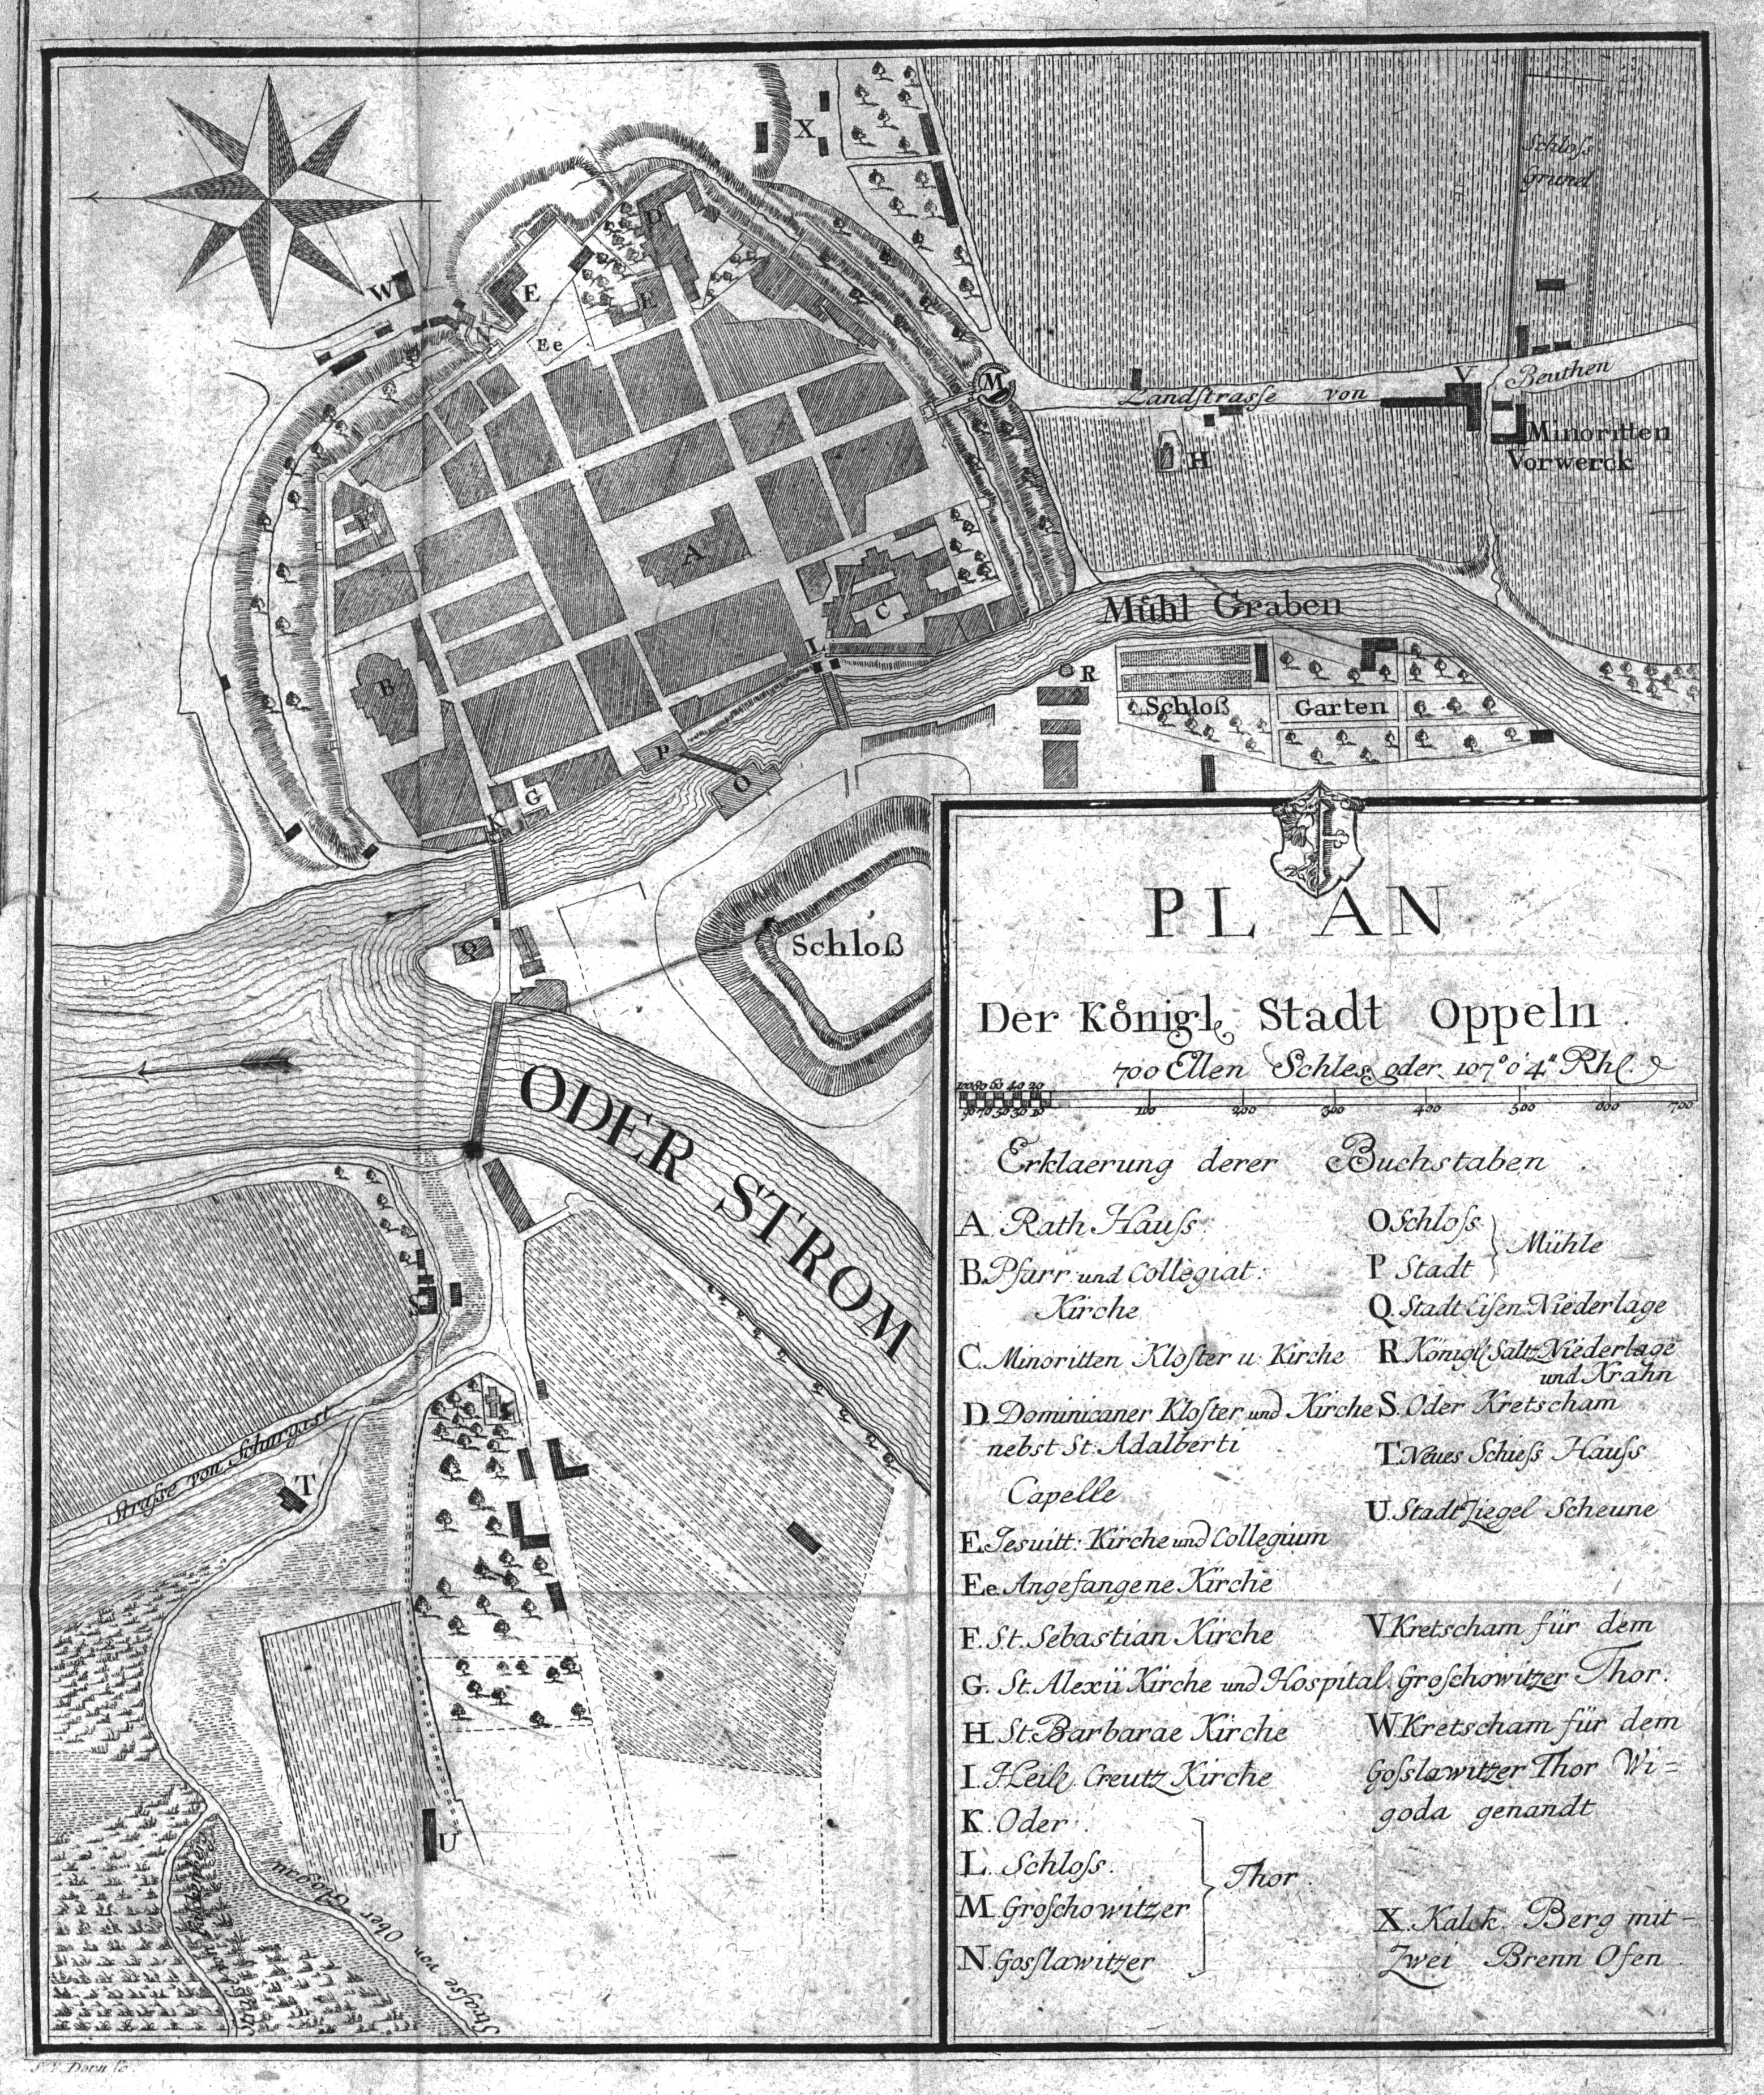 X
Schloſs
grund
D
W
E
E
Ee
M
Landſtrasſe von
V
Beuthen
Minoritten
Vorwerck
H
F
A
C
Mühl Graben
L
R
B
Schloß
Garten
P
O
G
K
Q
Schloß
PLAN
Der Königl. Stadt Oppeln.
700 Ellen Schles. oder 107° 0' 4" Rhl.
100 80 60 40 20
90 70 50 30 10 100 200 300 400 500 600 700
ODER STROM
Erklaerung derer Buchstaben.
A. Rath Hauſs.
B. Pfarr und Collegiat:
Kirche
C. Minoritten Kloſter u. Kirche
D. Dominicaner Kloſter und Kirche
nebst St. Adalberti
Capelle
E. Jesuitt: Kirche und Collegium
Ee. Angefangene Kirche
F. St. Sebastian Kirche
G. St. Alexii Kirche und Hospital.
H. St. Barbarae Kirche
I. Heil. Creutz Kirche
K. Oder.
L. Schloſs.
M. Groſchowitzer
N. Gosſlawitzer
Thor.
O Schloſs
P Stadt
Mühle
Q. Stadt Eiſen Niederlage
R. Königl. Saltz Niederlage
und Krahn
S. Oder Kretscham
T. Neues Schieſs Hauſs
U. Stadt Ziegel Scheune
V. Kretscham für dem
Groſchowitzer Thor.
W. Kretscham für dem
Goſslawitzer Thor Wi=
goda genandt
X. Kalck Berg mit
Zwei Brenn Ofen
S
Straſse von Schurgast
T
U
Straſse von Ober Glogau